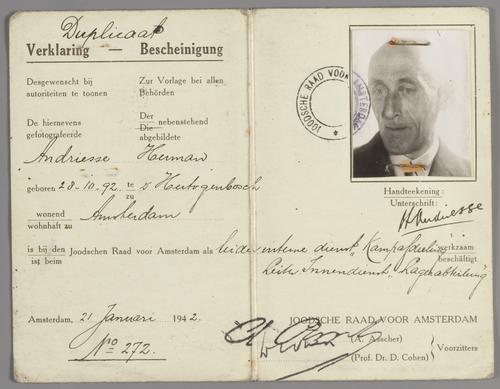 Duplicaat
Verklaring — Bescheinigung
Desgewenscht bij
autoriteiten te toonen
Zur Vorlage bei allen
Behörden
De hiernevens
gefotografeerde
Der
Die nebenstehend
abgebildete
Andriesse Herman
geboren 28-10-92 te
zu
's Hertogenbosch
wonend
wohnhaft zu
Amsterdam
is bij den
ist beim
Joodschen Raad voor Amsterdam als leider interne dienst „Kampafdeeling" werkzaam
beschäftigt
Leiter Innendienst „Lagerabteilung"
Amsterdam, 21 Januari 1942.
No 272.
JOODSCHE RAAD VOOR AMSTERDAM
Handteekening :
Unterschrift :
HAndriesse
JOODSCHE RAAD VOOR AMSTERDAM
(A. Asscher)
(Prof. Dr. D. Cohen)
Voorzitters